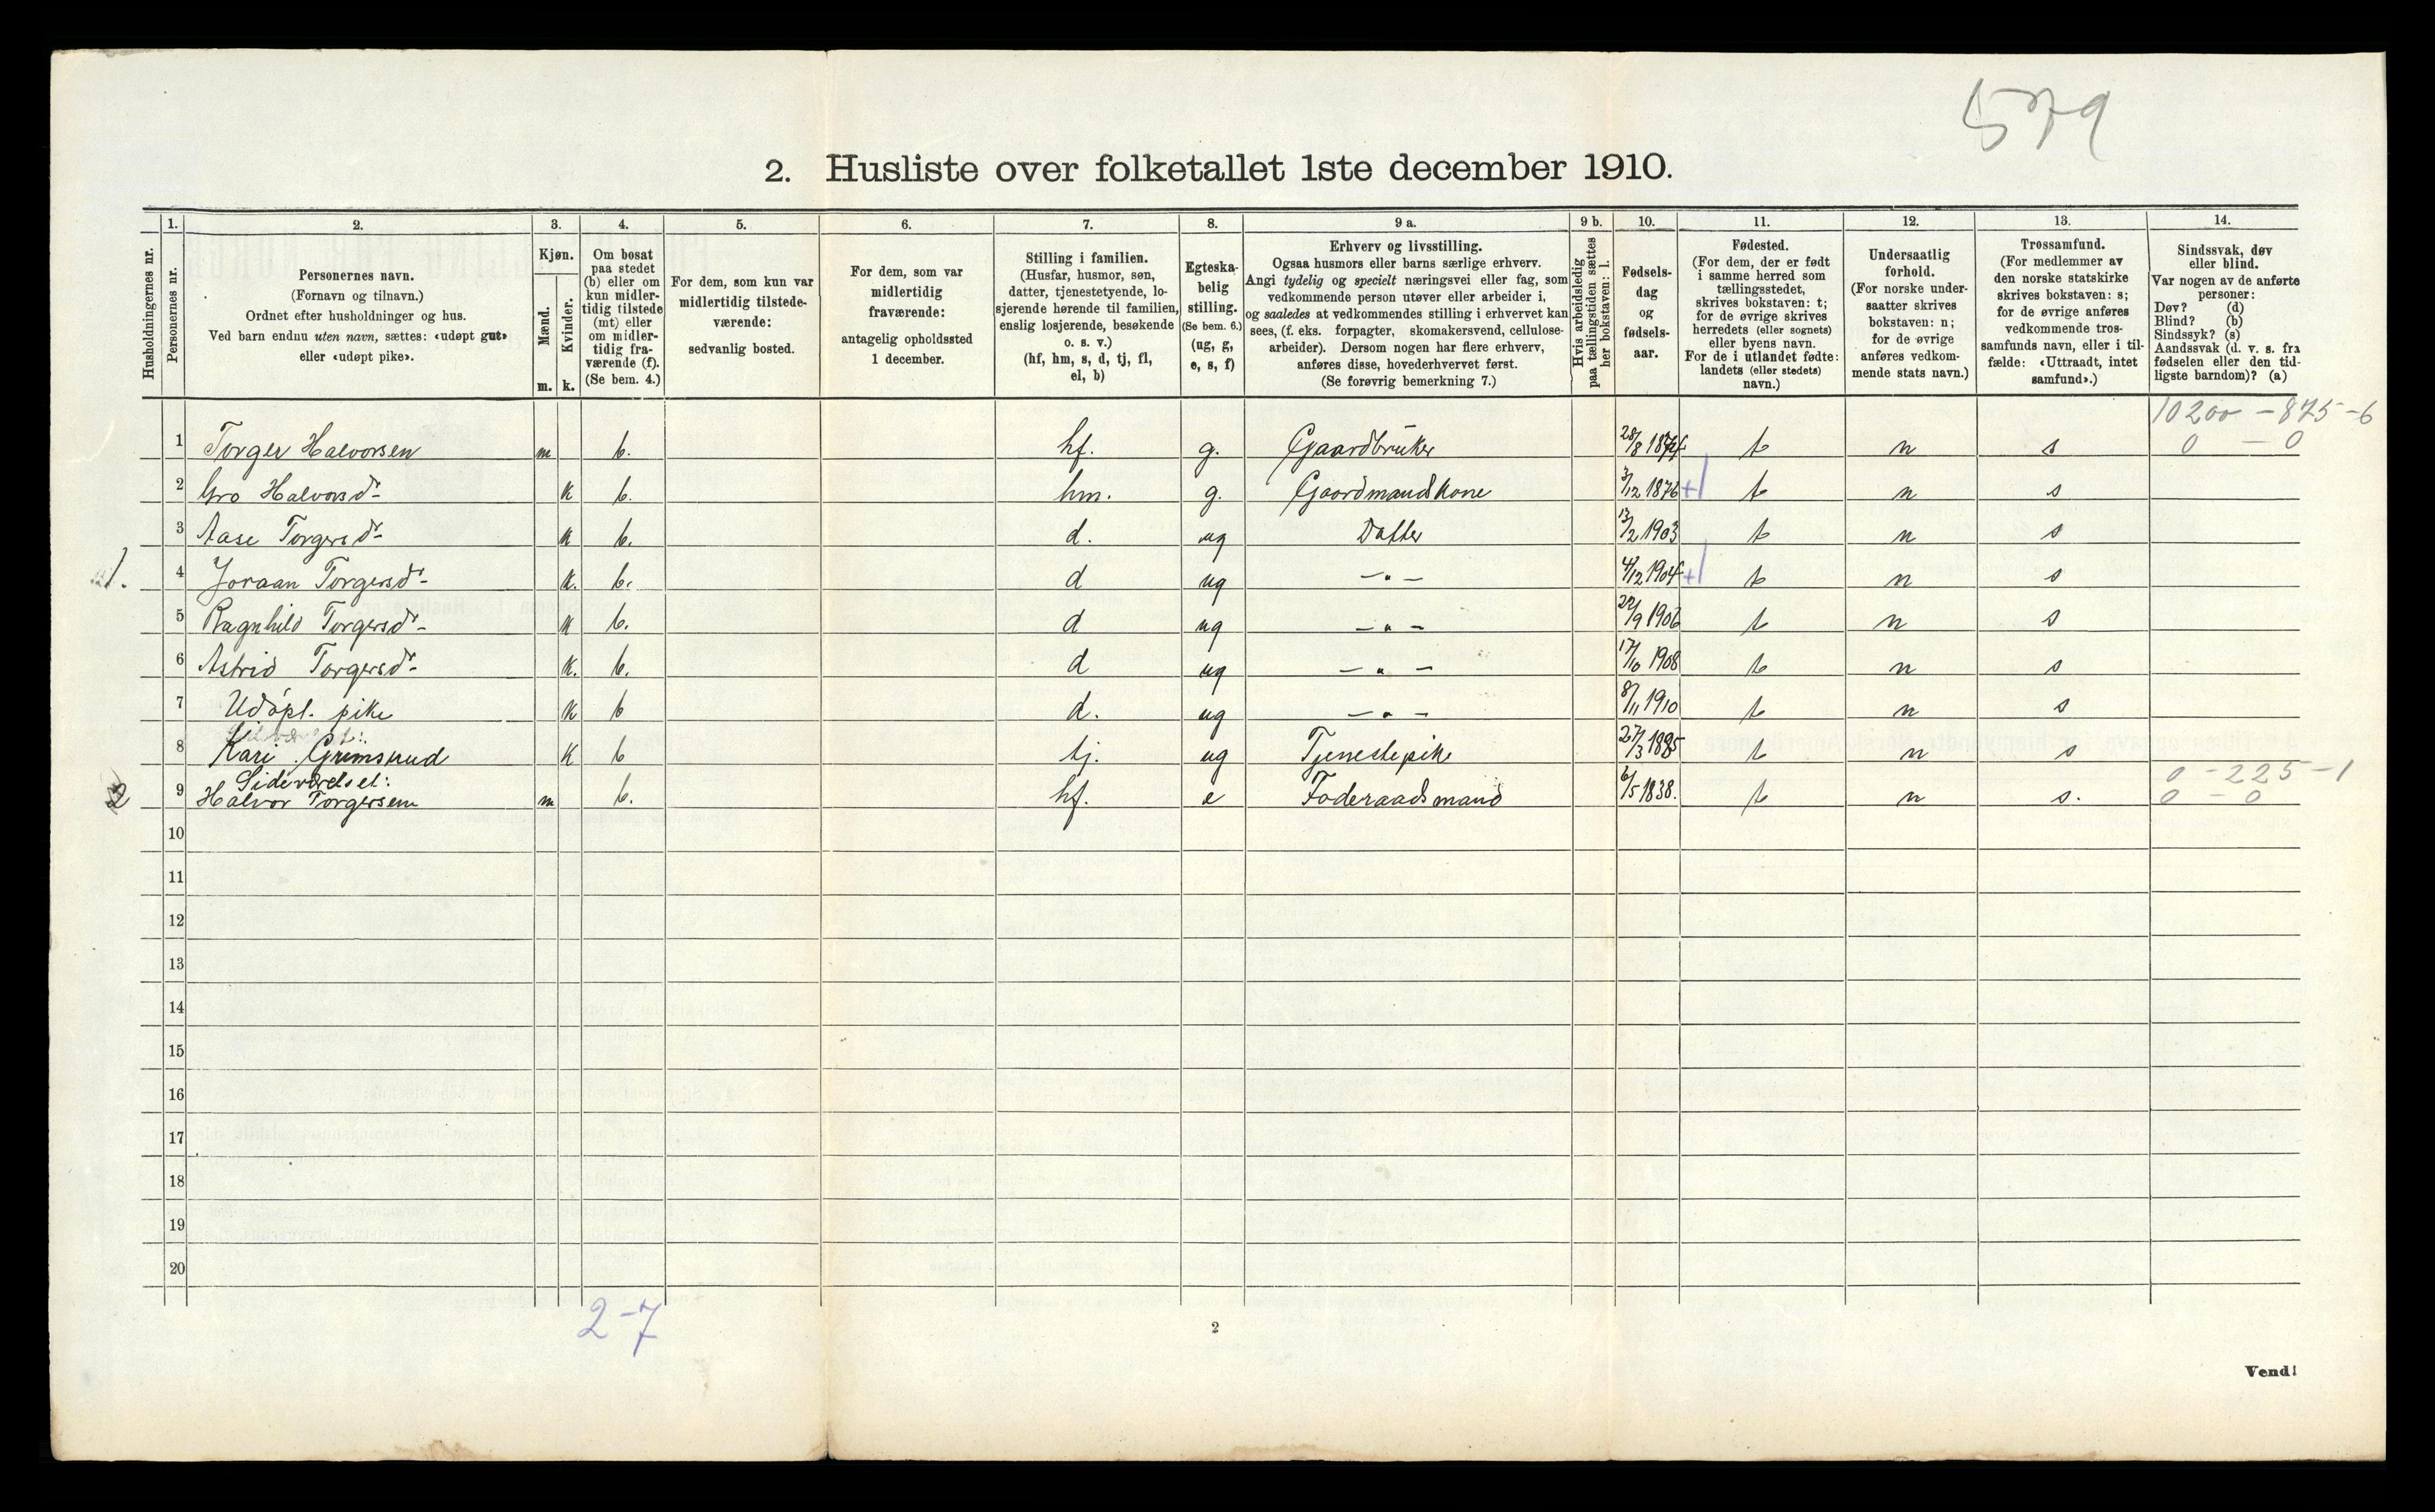 579
2. Husliste over folketallet 1ste december 1910.
Husholdningernes nr.
1. Personernes nr.
2. Personernes navn. (Fornavn og tilnavn.) Ordnet efter husholdninger og hus. Ved barn endnu uten navn, sættes: «udøpt gut» eller «udøpt pike».
3. Kjøn. Mænd. m. Kvinder. k.
4. Om bosat paa stedet (b) eller om kun midlertidig tilstede (mt) eller om midlertidig fraværende (f). (Se bem. 4.)
5. For dem, som kun var midlertidig tilstedeværende: sedvanlig bosted.
6. For dem, som var midlertidig fraværende: antagelig opholdssted 1 december.
7. Stilling i familien. (Husfar, husmor, søn, datter, tjenestetyende, losjerende hørende til familien, enslig losjerende, besøkende o. s. v.) (hf, hm, s, d, tj, fl, el, b)
8. Egteskabelig stilling. (Se bem. 6.) (ug, g, e, s, f)
9 a. Erhverv og livsstilling. Ogsaa husmors eller barns særlige erhverv. Angi tydelig og specielt næringsvei eller fag, som vedkommende person utøver eller arbeider i, og saaledes at vedkommendes stilling i erhvervet kan sees, (f. eks. forpagter, skomakersvend, cellulosearbeider). Dersom nogen har flere erhverv, anføres disse, hovederhvervet først. (Se forøvrig bemerkning 7.)
9 b. Hvis arbeidsledig paa tællingstiden sættes her bokstaven: l.
10. Fødselsdag og fødselsaar.
11. Fødested. (For dem, der er født i samme herred som tællingsstedet, skrives bokstaven: t; for de øvrige skrives herredets (eller sognets) eller byens navn. For de i utlandet fødte: landets (eller stedets) navn.)
12. Undersaatlig forhold. (For norske undersaatter skrives bokstaven: n; for de øvrige anføres vedkommende stats navn.)
13. Trossamfund. (For medlemmer av den norske statskirke skrives bokstaven: s; for de øvrige anføres vedkommende trossamfunds navn, eller i tilfælde: «Uttraadt, intet samfund».)
14. Sindssvak, døv eller blind. Var nogen av de anførte personer: Døv? (d) Blind? (b) Sindssyk? (s) Aandssvak (d. v. s. fra fødselen eller den tidligste barndom)? (a)
10200 - 875 - 6
1 Torger Halvorsen m b. hf. g. Gaardbruker 28/8 1874 t n s 0 - 0
2 Gro Halvorsdr k b. hm. g. Gaardmandskone 3/12 1876 +1 t n s
3 Aase Torgersdr k b. d. ug Datter 13/2 1903 t n s
1. 4 Joraan Torgersdr k. b. d ug - " - 4/12 1904 +1 t n s
5 Ragnhild Torgersdr k b. d ug - " - 22/9 1906 t n s
6 Astrid Torgersdr k. b. d ug - " - 17/10 1908 t n s
7 Udøpt. pike k b d. ug - " - 8/11 1910 t n s
8 Kari Grimsrud k b tj. ug Tjenestepike 27/3 1895 t n s
Sideværelset: 0 - 225 - 1
2 9 Halvor Torgersen m b. hf. e Føderaadsmand 6/5 1838. t n s. 0 - 0
10
11
12
13
14
15
16
17
18
19
20
2-7
2
Vend!